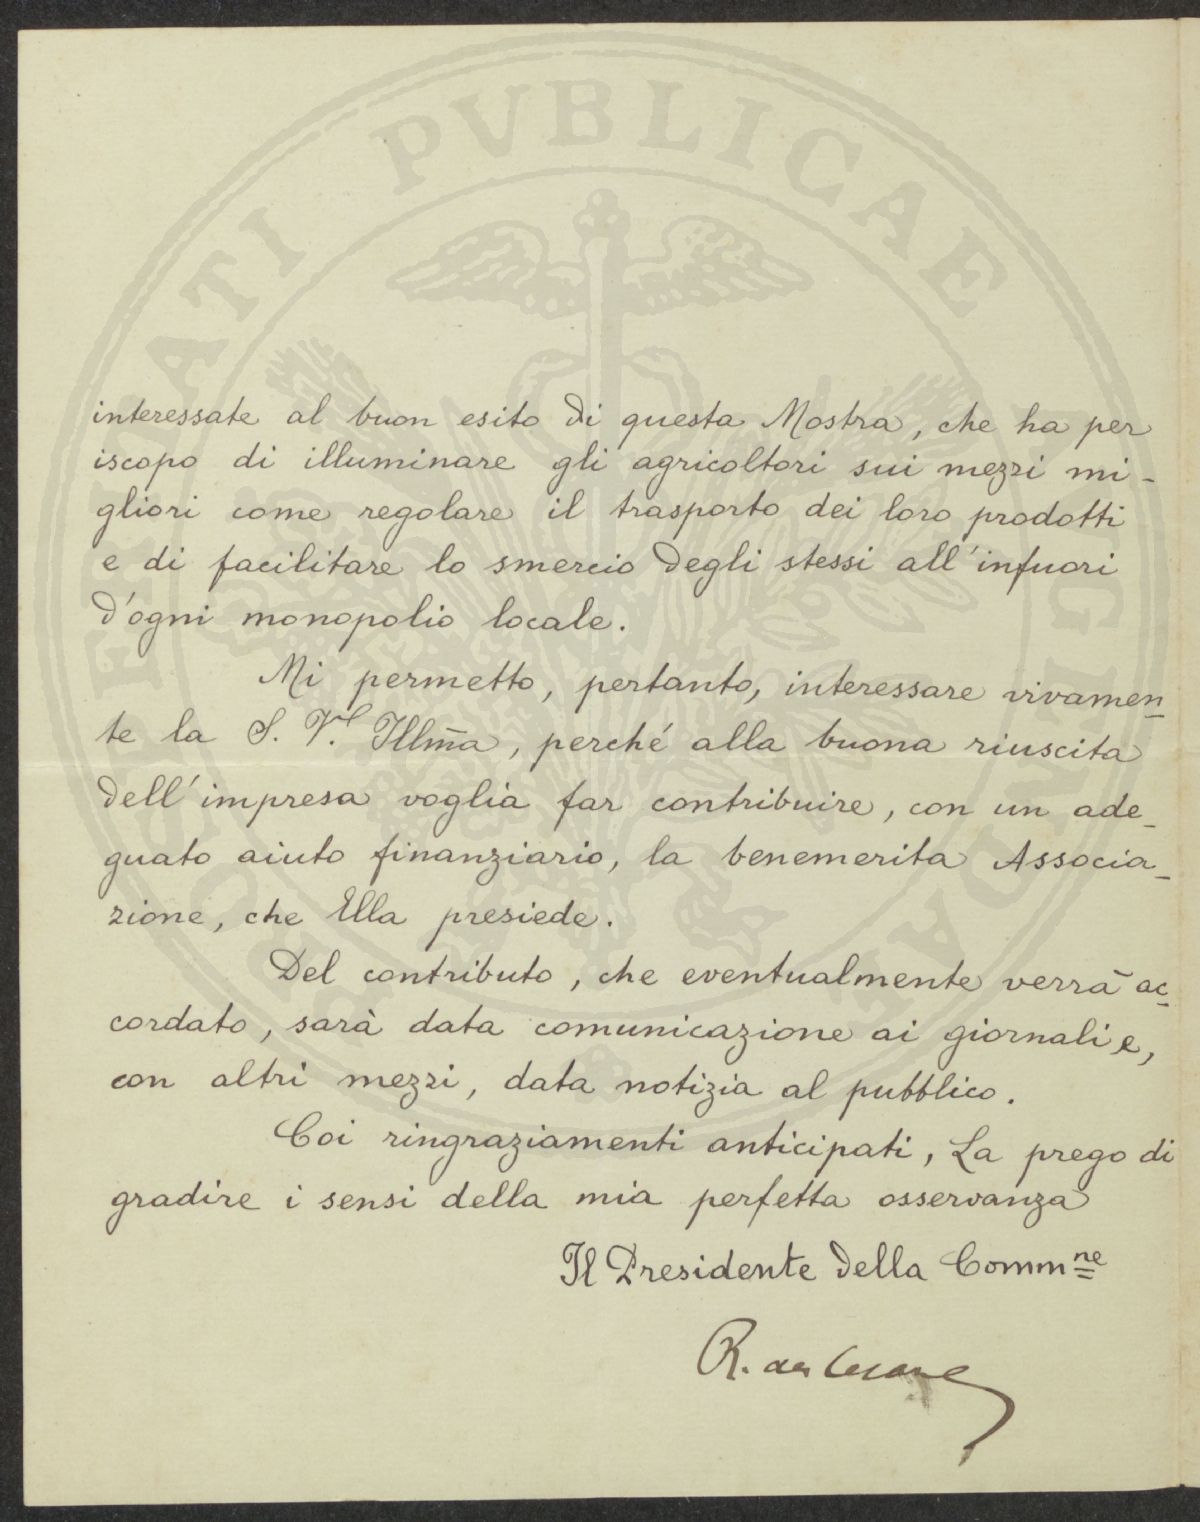 interessate al buon esito di questa Mostra, che ha per
iscopo di illuminare gli agricoltori sui mezzi mi-
gliori come regolare il trasporto dei loro prodotti
e di facilitare lo smercio degli stessi all'infuori
d'ogni monopolio locale.
Mi permetto, pertanto, interessare vivamen=
te la S. V. Illma, perché alla buona riuscita
dell'impresa voglia far contribuire, con un ade_
guato aiuto finanziario, la benemerita Associa_
zione, che Ella presiede.
Del contributo, che eventualmente verrà ac=
cordato, sarà data comunicazione ai giornali e,
con altri mezzi, data notizia al pubblico.
Coi ringraziamenti anticipati, La prego di
gradire i sensi della mia perfetta osservanza
Il Presidente della Commne
R. de Cesare
PVBLICAE